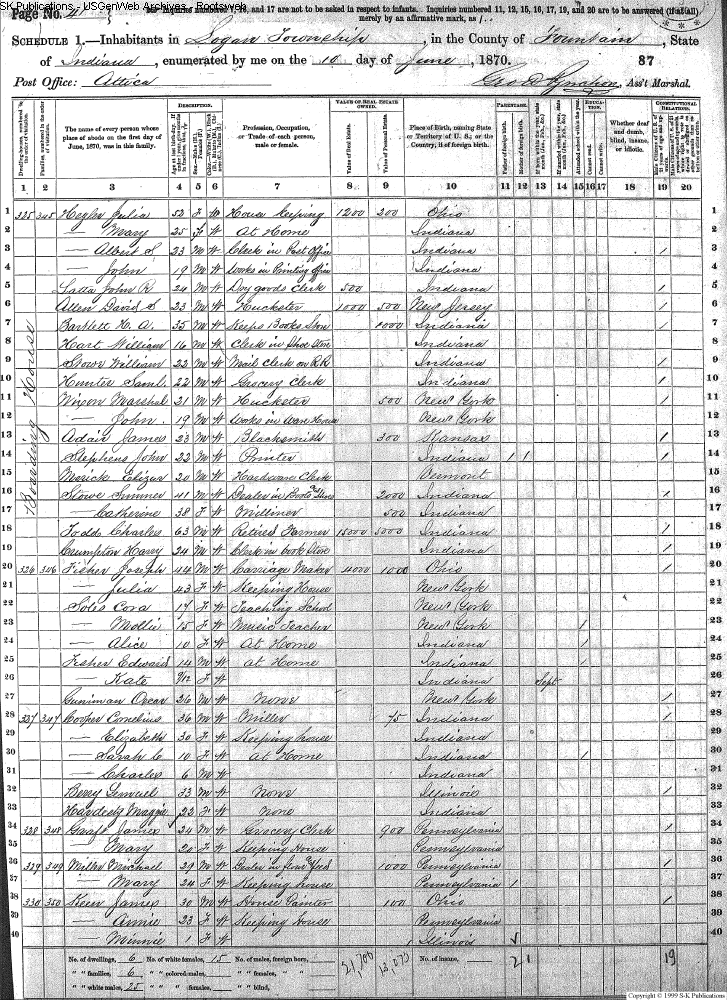 SK Publications - USGenWeb Archives - Rootsweb
Page No. 4
Inquiries numbered 7, 16, and 17 are not to be asked in respect to infants. Inquiries numbered 11, 12, 15, 16, 17, 19, and 20 are to be answered (if at all)
merely by an affirmative mark, as /.
SCHEDULE 1.—Inhabitants in Logan Township, in the County of Fountain, State
of Indiana, enumerated by me on the 10 day of June, 1870. 87
Post Office: Attica Ass't Marshal.
DESCRIPTION. VALUE OF REAL ESTATE OWNED. PARENTAGE. EDUCATION. CONSTITUTIONAL RELATIONS.
The name of every person whose place of abode on the first day of June, 1870, was in this family.
Profession, Occupation, or Trade of each person, male or female.
Value of Real Estate. Value of Personal Estate.
Place of Birth, naming State or Territory of U. S.; or the Country, if of foreign birth.
Father of foreign birth. Mother of foreign birth.
Attended school within the year. Cannot read. Cannot write.
Whether deaf and dumb, blind, insane, or idiotic.
1 2 3 4 5 6 7 8 9 10 11 12 13 14 15 16 17 18 19 20
Boarding House
1 325 345 Hegler Julia 52 F W House keeping 1200 200 Ohio
2 — Mary 25 F W At Home Indiana
3 — Albert S 23 M W Clerk in Post Office Indiana /
4 — John 19 M W Works in Printing office Indiana
5 Latta John R 24 M W Dry goods Clerk 500 Indiana /
6 Allen David S 23 M W Huckster 1000 500 New Jersey /
7 Bartlett H. A. 35 M W Keeps Books Store 1000 Indiana /
8 Hart William 16 M W Clerk in Shoe Store Indiana
9 Stowe William 22 M W Mail Clerk on RR Indiana /
10 Hunter Saml. 22 M W Grocery Clerk Indiana /
11 Wixon Marshal 21 M W Huckster 500 New York /
12 John 19 M W Works in Ware House New York
13 Adair James 23 M W Blacksmith 300 Kansas /
14 Stephens John 22 M W Printer Indiana / / /
15 Merrick 20 M W Hardware Clerk Vermont
16 Stowe Sumner 41 M W Dealer in Boots & Shoes 2000 Indiana /
17 — Catherine 38 F W Milliner 500 Indiana
18 Todd Charles 63 M W Retired Farmer 15000 5000 Indiana /
19 Crumpton Harry 24 M W Clerk in Book Store Indiana /
20 326 346 Fisher Joseph 44 M W Carriage Maker 4000 1000 Ohio /
21 — Julia 43 F W Keeping House New York
22 Solis Cora 17 F W Teaching School New York
23 — Mollie 15 F W Music Teacher New York /
24 — Alice 10 F W At Home Indiana /
25 Fisher Edward 14 M W at Home Indiana /
26 — Kate 9/12 F W Indiana Sept
27 Oscar 26 M W None New York /
28 327 347 Cooper Cornelius 36 M W Miller 75 Indiana /
29 — Elizabeth 30 F W Keeping house Indiana
30 — Sarah C 10 F W at Home Indiana /
31 — Charles 6 M W Indiana
32 Berry Lemuel 33 M W None Illinois /
33 Maggie 22 F W None Indiana
34 328 348 Graft James 24 M W Grocery Clerk 900 Pennsylvania /
35 — Mary 20 F W Keeping House Pennsylvania
36 329 349 Miller Michael 29 M W Dealer in flour & feed 1000 Pennsylvania /
37 — Mary 24 F W Keeping house Pennsylvania /
38 330 350 Keen James 30 M W House Painter 100 Ohio /
39 — Annie 23 F W Keeping house Pennsylvania
40 — Minnie 1 F W Illinois
No. of dwellings, 6 No. of white females, 15 No. of males, foreign born, 21,700 12,075 No. of insane, 2 1 19
" " families, 6 " " colored males, " " females, "
" " white males, 25 " " " females, " " blind,
Copyright © 1999 S-K Publications